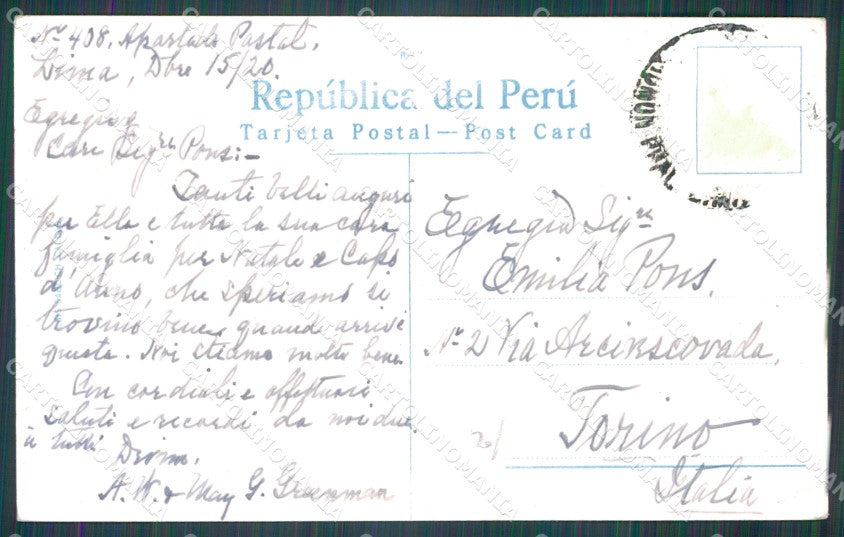 Nº 408. Apartado Postal.
Lima, Dbre 15/20.
República del Perú
Tarjeta Postal—Post Card
Egregia
Cara Sigra Pons:—
Tanti belli auguri
per Ella e tutta la sua cara
famiglia per Natale e Capo
d'Anno, che speriamo si
trovino bene quand arrive
questa. Noi stiamo molto bene.
Con cordiali e affettuosi
saluti e ricordi da noi due.
a tutti
A. W. & May G. Greenman
Egregia Sigra
Emilia Pons.
Nº 2 Via Arcivescovada,
Torino
Italia
CARTOLINOMANIA